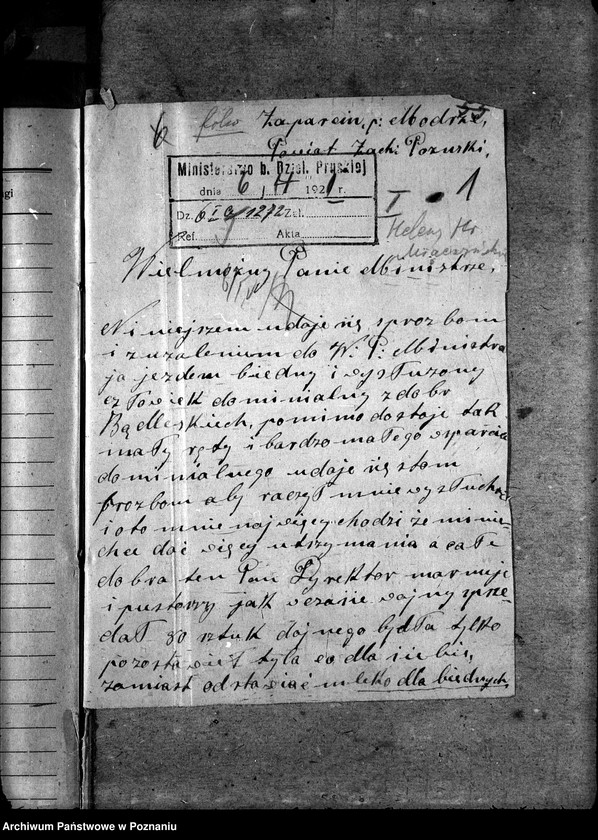 55
folw Zaparcin, p: Modrze,
Powiat Zach: Poznski,
Ministerstwo b. Dziel. Pruskiej
dnia 6/4 1921 r.
Dz. 6 I c/1272 Zał.
Ref. Akta
I • 1
Helenz Hr
Wielmożny Panie Ministrze,
Niniejszem udaje się sprozbom
i zuzaleniem do W. P: Ministra
ja jezdem biedny i wysłuzony
człowiek dominialny z dobr
Bądleskiech, pomimo dostaje tak
mały ręty i bardzo małego wsparcia
dominialnego udaje się stom
prozbom aby raczył mnie wysłuchać
i oto mnie najwięcy chodzi że mi nie
chce dać więcy utrzymania a całe
dobra ten Pan Dyrektor marnuje
i pustorzy jak wczasie wojny sprze-
dał 80 sztuk dojnego bydła tylko
pozostawieł tyla co dla siebie,
zamiast odstawiać mleko dla biednych
Archiwum Państwowe w Poznaniu